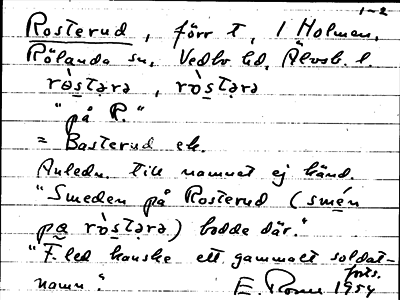 1-2
Rosterud, förr t. 1 Holmen,
Rölanda sn, Vedbo hd, Älvsb. l.
rò̀stərə, ròstərə
"på R."
= Basterud ek.
Anledn. till namnet ej känd.
"Smeden på Rosterud (smén
pɑ ròstərə) bodde där."
"F. led kanske ett gammalt soldat-
namn."
forts.
E. 1954